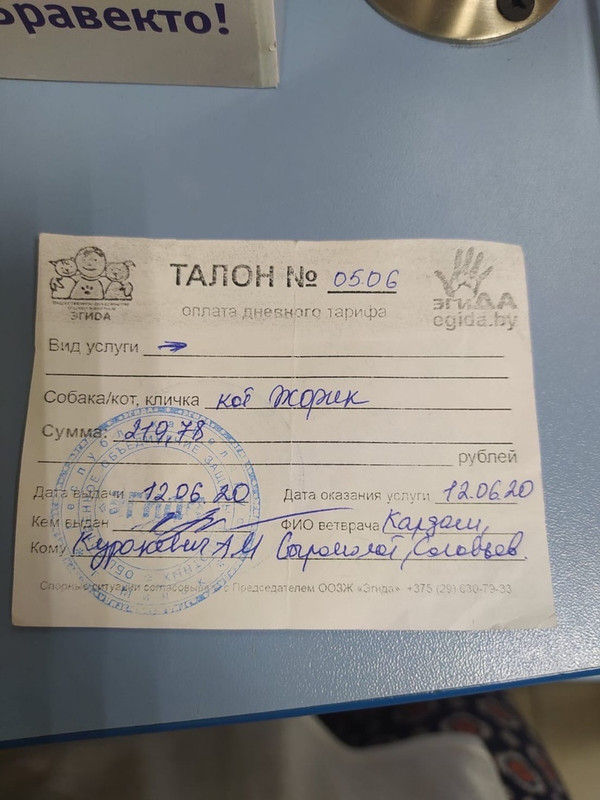 Бравекто!
ТАЛОН № 05.06
оплата дневного тарифа
ЭГИДА
ЭГИДА
egida.by
Вид услуги
Собака/кот, кличка кот Жорик
Сумма: 219,78
рублей
Дата выдачи 12.06.20 Дата оказания услуги 12.06.20
Кем выдан ФИО ветврача
Кому Куракевич А М Сыромолот, Соловьев
Спорные ситуации согласовываются с Председателем ООЗЖ «Эгида» +375 (29) 630-79-33